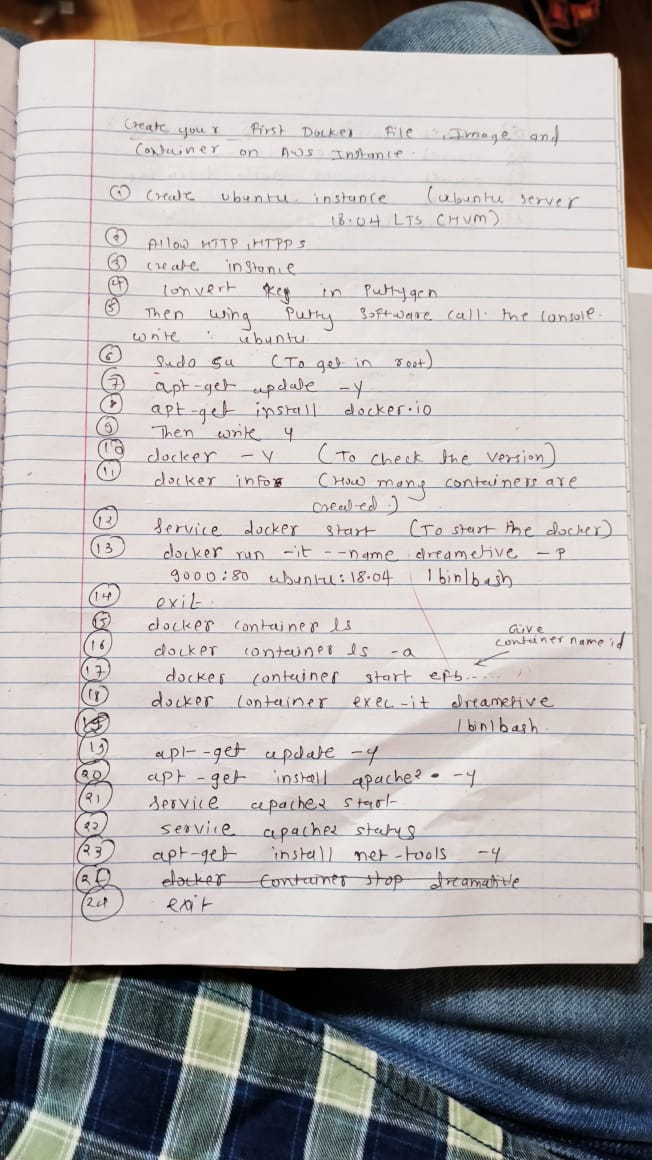 Create your First Docker File, Image and
Container on AWS Instance.
① Create ubuntu instance (ubuntu server
18.04 LTS (HVM)
② Allow HTTP, HTPPS
③ create instance
④ Convert key in Puttygen
⑤ Then using Putty software call the console.
write : ubuntu.
⑥ Sudo su (To get in root)
⑦ apt-get update -y
⑧ apt-get install docker.io
⑨ Then write y
⑩ docker -v (To check the version)
⑪ docker info (How many containers are
created.)
⑫ Service docker start (To start the docker)
⑬ docker run -it --name dreametive -p
9000:80 ubuntu:18.04 /bin/bash
⑭ exit.
⑮ docker container ls
⑯ docker container ls -a
Give
container name id
⑰ docker container start efb.....
⑱ docker container exec -it dreametive
/bin/bash.
⑲ apt-get update -y
⑳ apt-get install apache2 -y
㉑ service apache2 start
㉒ service apache2 status
㉓ apt-get install net-tools -y
docker container stop dreamative
㉔ exit